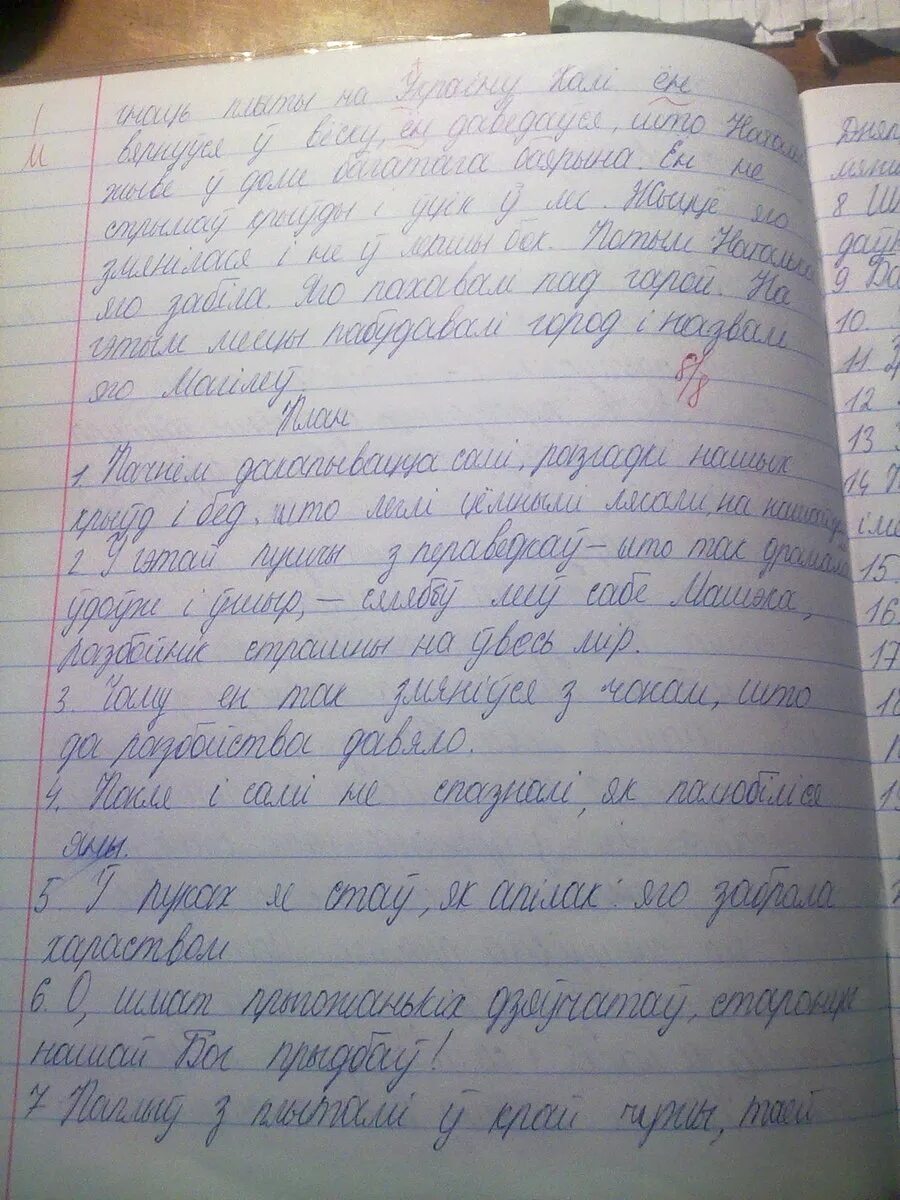 гнаць плыты на Украіну Калі ён
вярнуўся ў вёску, ён даведаўся, што Наталь
жыве ў доме багатага баярына. Ён не
стрымаў крыўды і ўцік ў лес. Жыццё яго
змянілася і не ў лепшы бок. Потым Наталька
яго забіла. Яго пахавалі пад гарой. На
гэтым месцы пабудавалі город і назвалі
яго Магілеў
8/8
План
1. Пачнём дакапывацца самі, разгадкі нашых
крыўд і бед, што леглі цёмнымі лясамі, на
2 У гэтай пушчы з пераведкаў – што так драмала
ўдоўж і ўшыр, – сялябу меў сабе Машэка,
разбойнік страшны на ўвесь мір.
3. Чаму ен так змяніўся з чокам, што
да разбойства давяло.
4. Покле і самі не спазналі, як палюбіліся
яны.
5 Ў руках я стаў, як апілак: яго забрала
хараством
6. О, шмат прыгожанькіх дзяўчатаў, старонцы
нашай Бог прыдбаў!
7 Паплыў з плытамі ў край чужы, таей
Дняп
мян
8 Ш
даў
9 Ба
10.
11
12
13
14
і ме
15.
16.
17